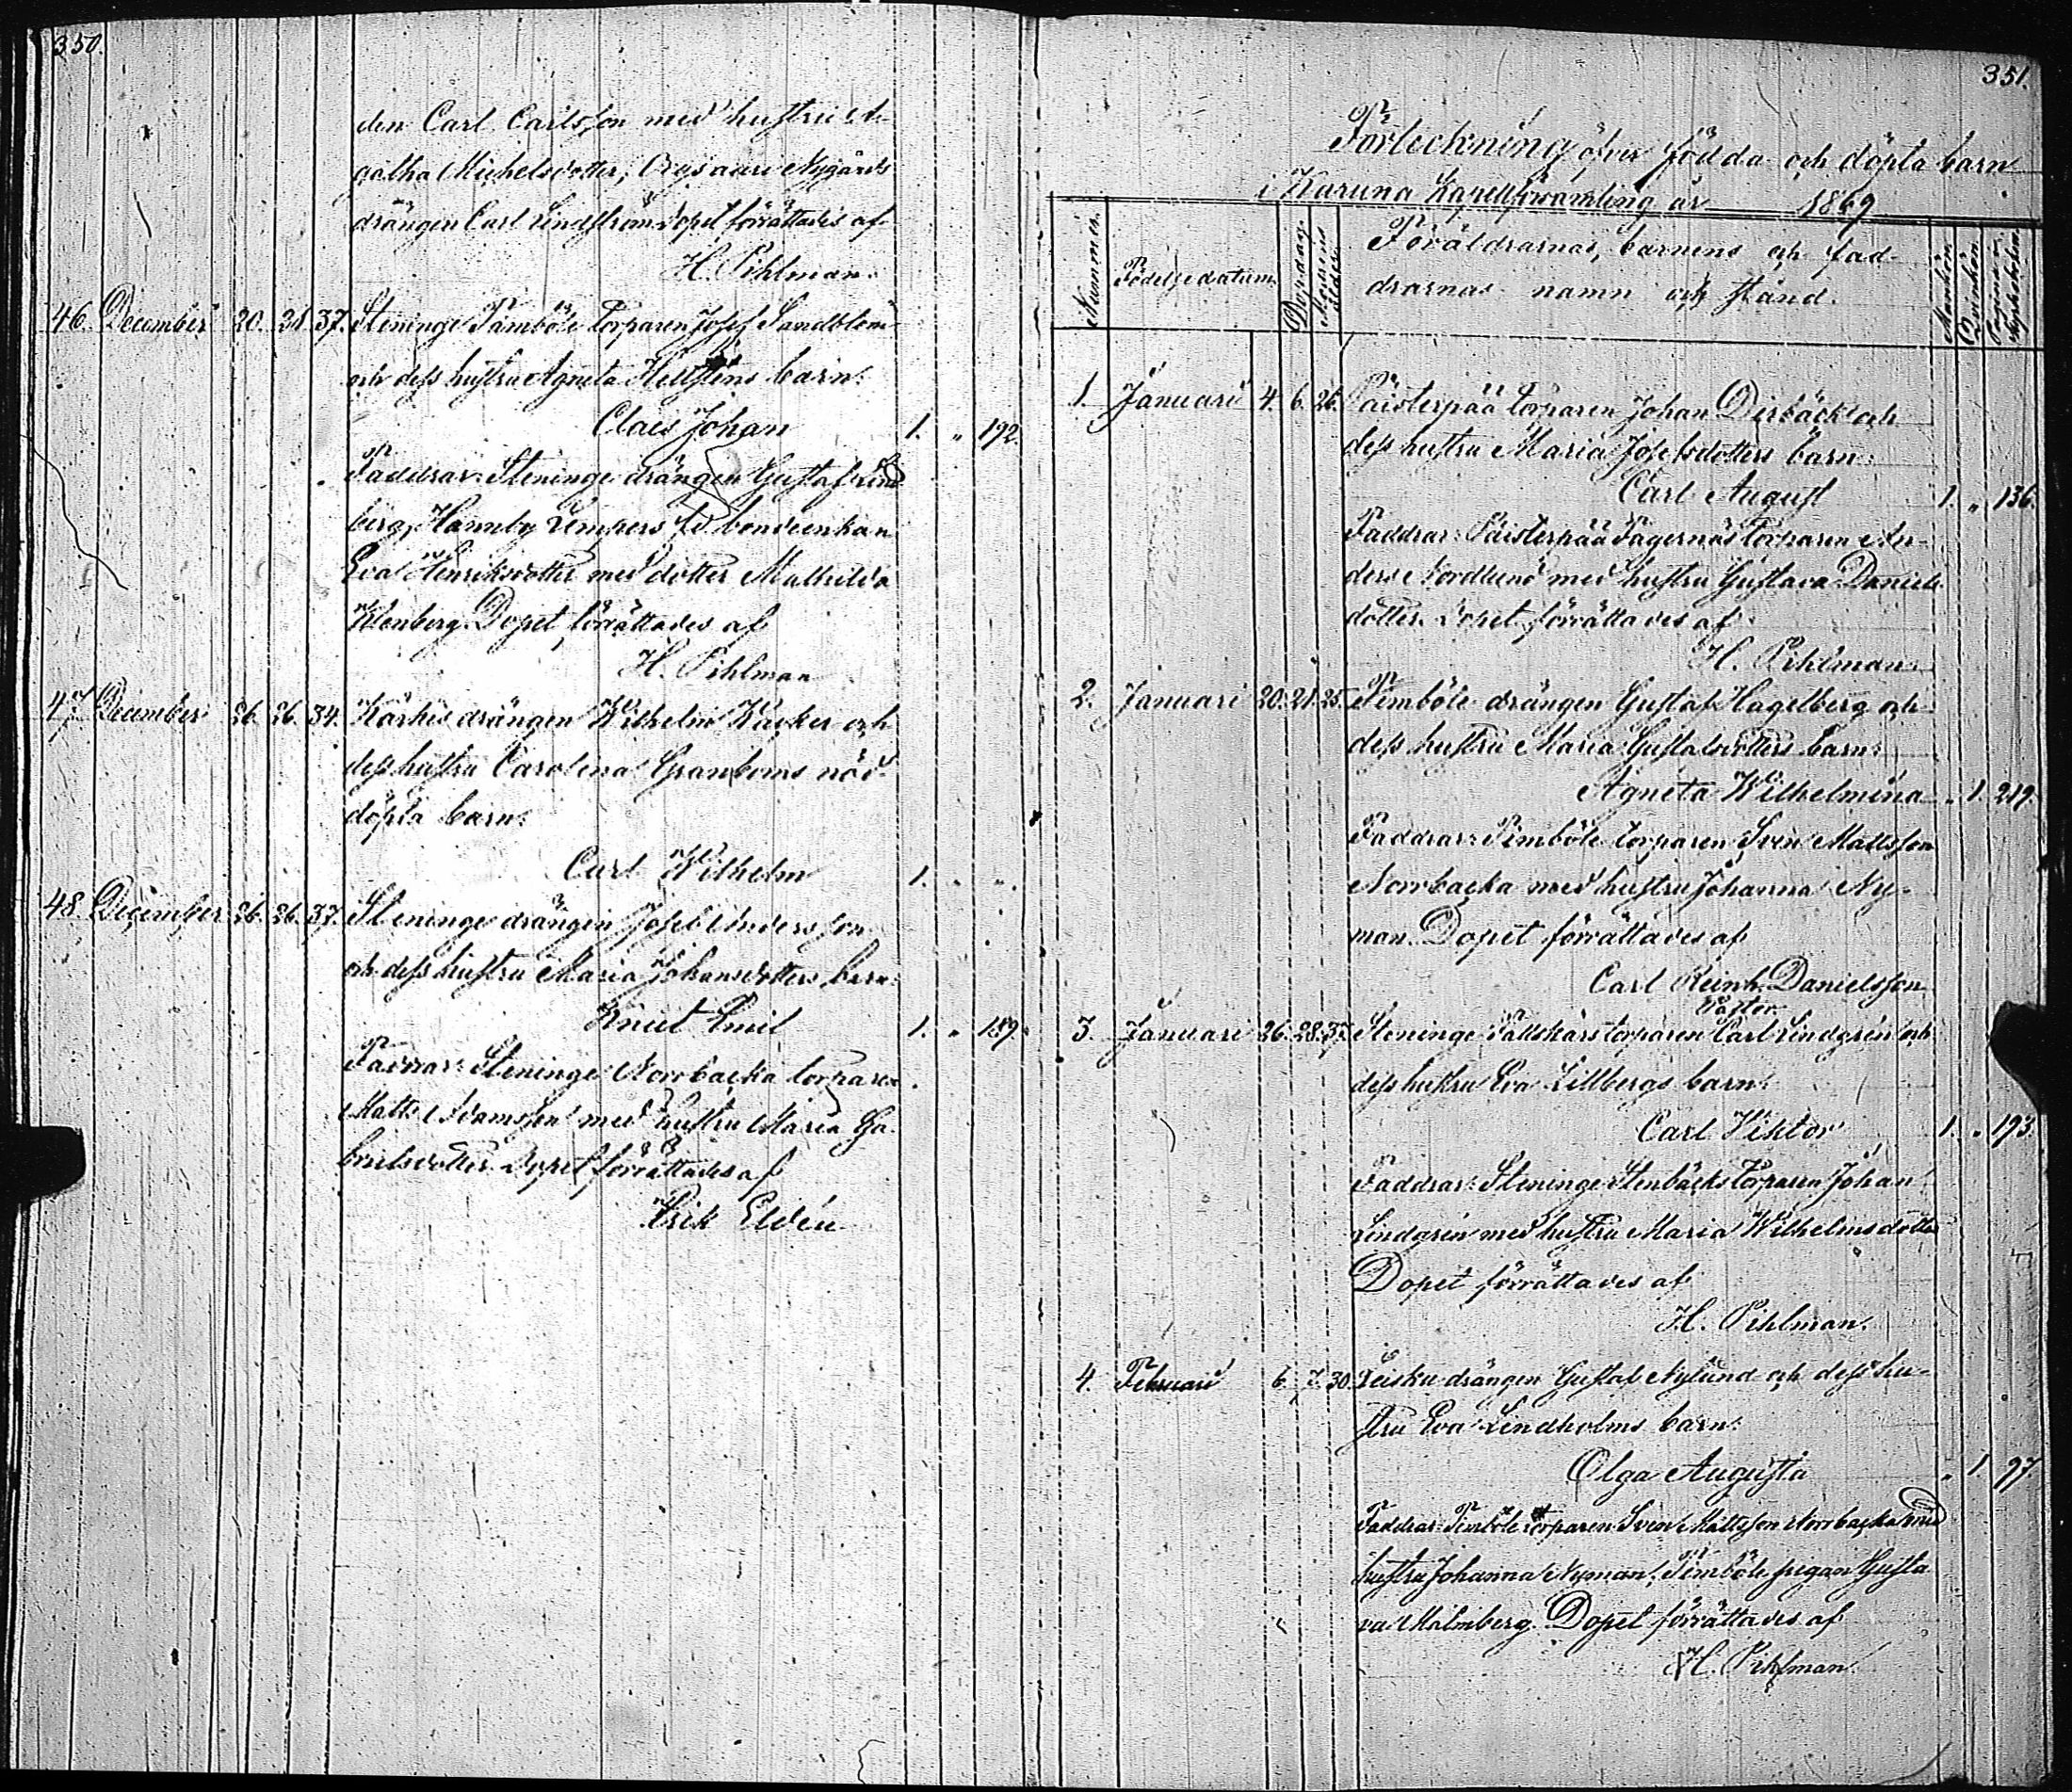 350.
den Carl Carlsson med hustru A-
gatha Michelsdotter, Nygårds
drängen Carl Lindström. Dopet förrättades af
H. Pihlman.
46. December 20. 21. 37. Steninge Torparen Josef Sandblom
och dess hustru Agneta Hellstens barn:
Claes Johan 1. " 192.
Faddrar: Steninge drängen Gustaf Lind
berg, Hanneby bondeenkan
Eva Henriksdotter med dotter Mathilda
Dopet förrättades af
H. Pihlman
47. December 26. 26. 34. Kärkis drängen Wilhelm och
dess hustru Carolina Granboms nöd-
döpta barn:
Carl Wilhelm 1. " ".
48. December 26. 26. 37. Steninge drängen Josef Andersson
och dess hustru Maria Johansdotters barn:
Knut Emil 1. " 189.
Faddrar: Steninge Norrbacka torparen
Matts Adamsson med hustru Maria Ga-
brielsdotter. Dopet förrättades af
Erik Eldén
351.
Förteckning öfver födda och döpta barn
i Karuna Kapellförsamling år 1869
Nummer. Födelsedatum. Dopdag. Modrens ålder. Föräldrarnas, barnens och fad-
drarnas namn och stånd. Mankön. Qvinkön. Pagina i
1. Januari 4. 6. 26. Päisterpää torparen Johan Dirbäck och
dess hustru Maria Josefsdotters barn:
Carl August 1. " 136.
Faddrar: Päisterpää Fagernäs torparen An-
ders Nordlund med hustru Gustava Daniels
dotter. Dopet förrättades af
H. Pihlman.
2. Januari 20. 21. 25. Pemböle drängen Gustaf Hagelberg och
dess hustru Maria Gustafsdotters barn:
Agneta Wilhelmina " 1. 219.
Faddrar: Pemböle torparen Sven Mattsson
Norrbacka med hustru Johanna Ny-
man. Dopet förrättades af
Carl Reinh. Danielsson
Pastor.
3. Januari 26. 28. 37. Steninge Fallskärs torparen Carl Lindgrén och
dess hustru Eva Lillbergs barn:
Carl Viktor 1. " 193.
Faddrar: Steninge Stenbäcks Torparen Johan
Lindgrén med hustru Maria Wilhelmsdotter
Dopet förrättades af
H. Pihlman.
4. Februari 6. 7. 30. drängen Gustaf Nylund och dess hu-
stru Eva Lindholms barn:
Olga Augusta " 1. 97.
Faddrar: Pemböle torparen Sven Mattsson Norrbacka med
hustru Johanna Nyman, Pemböle pigan Gusta
va Malmberg. Dopet förrättades af
H. Pihlman.